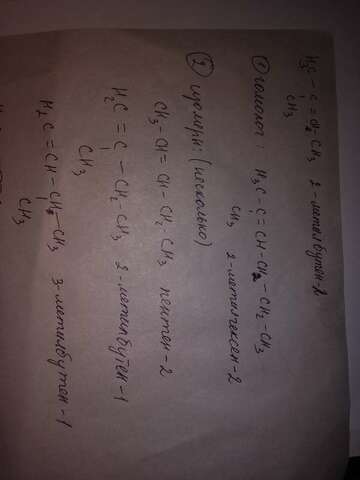 H₃C – C = CH – CH₃ 2-метилбутен-2
CH₃
① гомолог: H₃C – C = CH – CH₂ – CH₂ – CH₃
CH₃ 2-метилгексен-2
② изомеры: (несколько)
CH₃ – CH = CH – CH₂ CH₃ пентен-2
H₂C = C – CH₂ CH₃ 2-метилбутен-1
CH₃
H₂C = CH – CH – CH₃ 3-метилбутен-1
CH₃